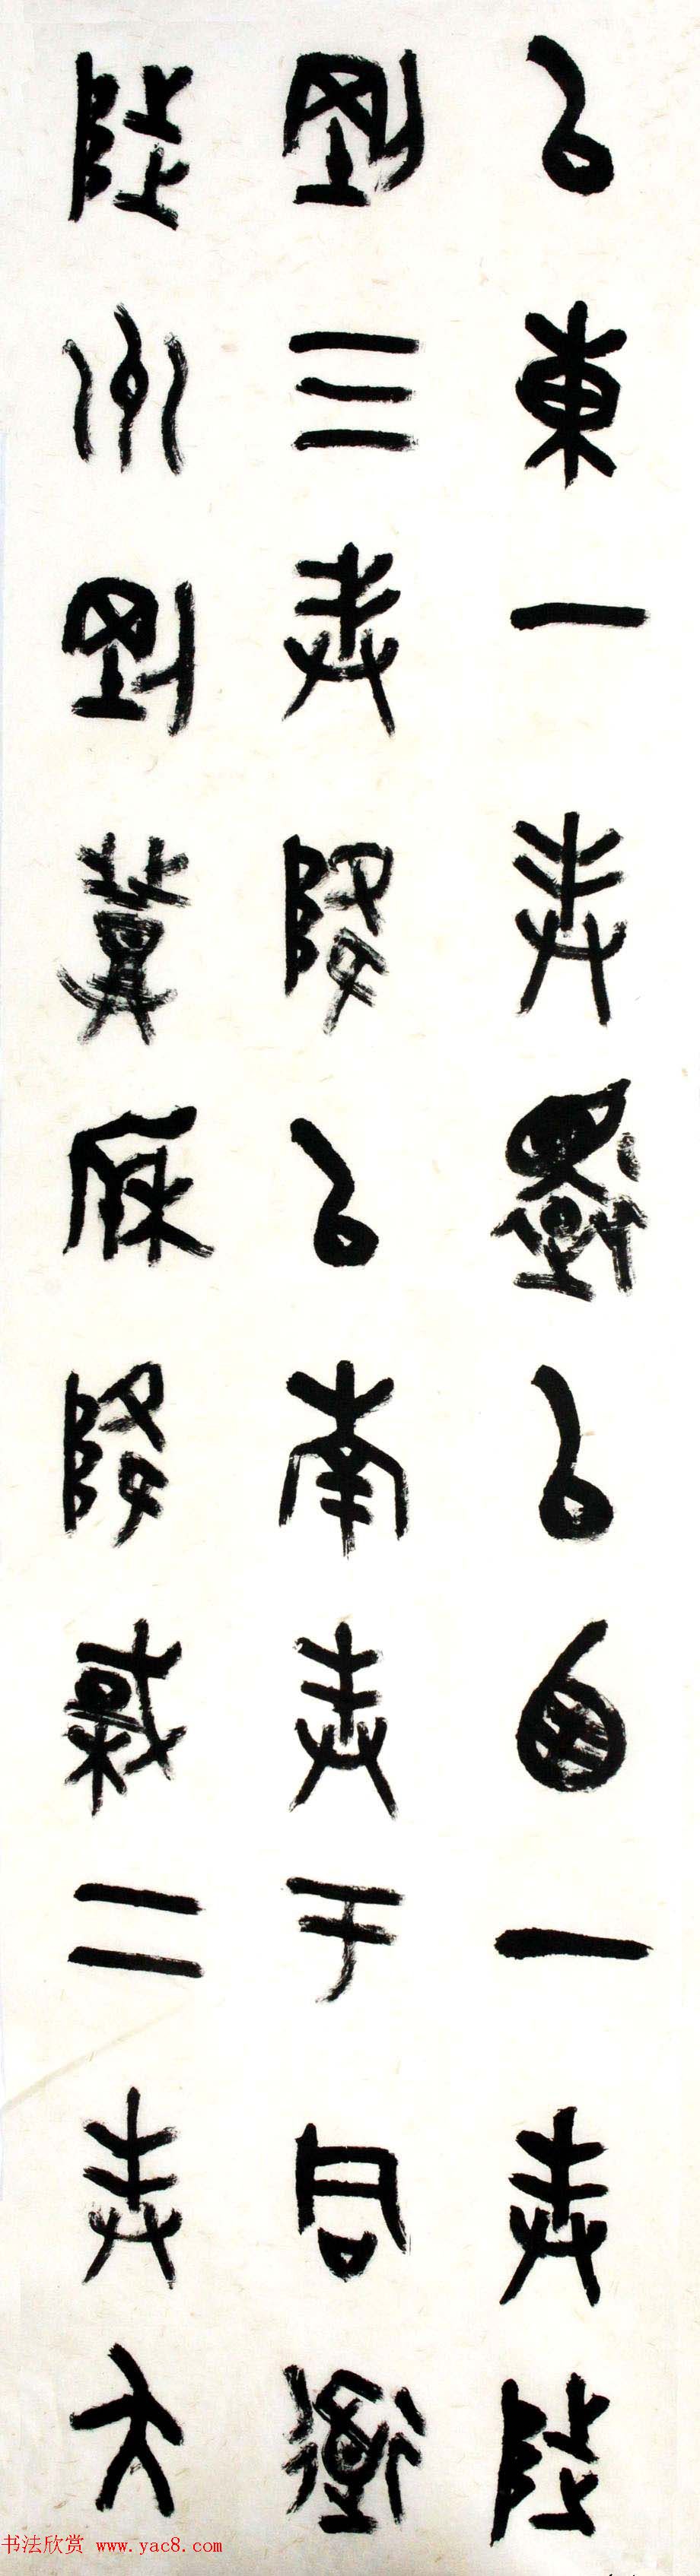 以東一封還以西一封陟
剛三封降以南封于同道
陟州剛登降棫二封大
书法欣赏 www.yac8.com